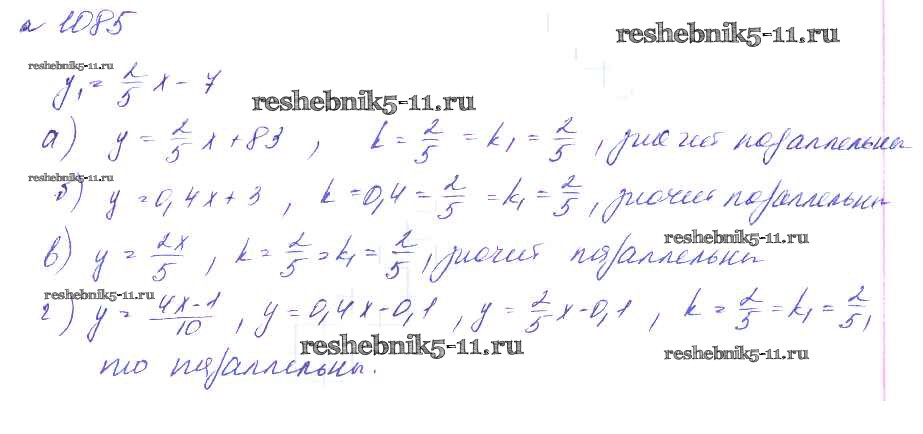 № 1085
reshebnik5-11.ru
reshebnik5-11.ru
y₁ = 2/5 x - 7
reshebnik5-11.ru
а) y = 2/5 x + 83 , k = 2/5 = k₁ = 2/5 , значит параллельны
reshebnik5-11.ru
б) y = 0,4x + 3 , k = 0,4 = 2/5 = k₁ = 2/5 , значит параллельны
reshebnik5-11.ru
в) y = 2x/5 , k = 2/5 = k₁ = 2/5 , значит параллельны
reshebnik5-11.ru
г) y = 4x-1/10 , y = 0,4x - 0,1 , y = 2/5 x - 0,1 , k = 2/5 = k₁ = 2/5,
reshebnik5-11.ru
reshebnik5-11.ru
то параллельны.